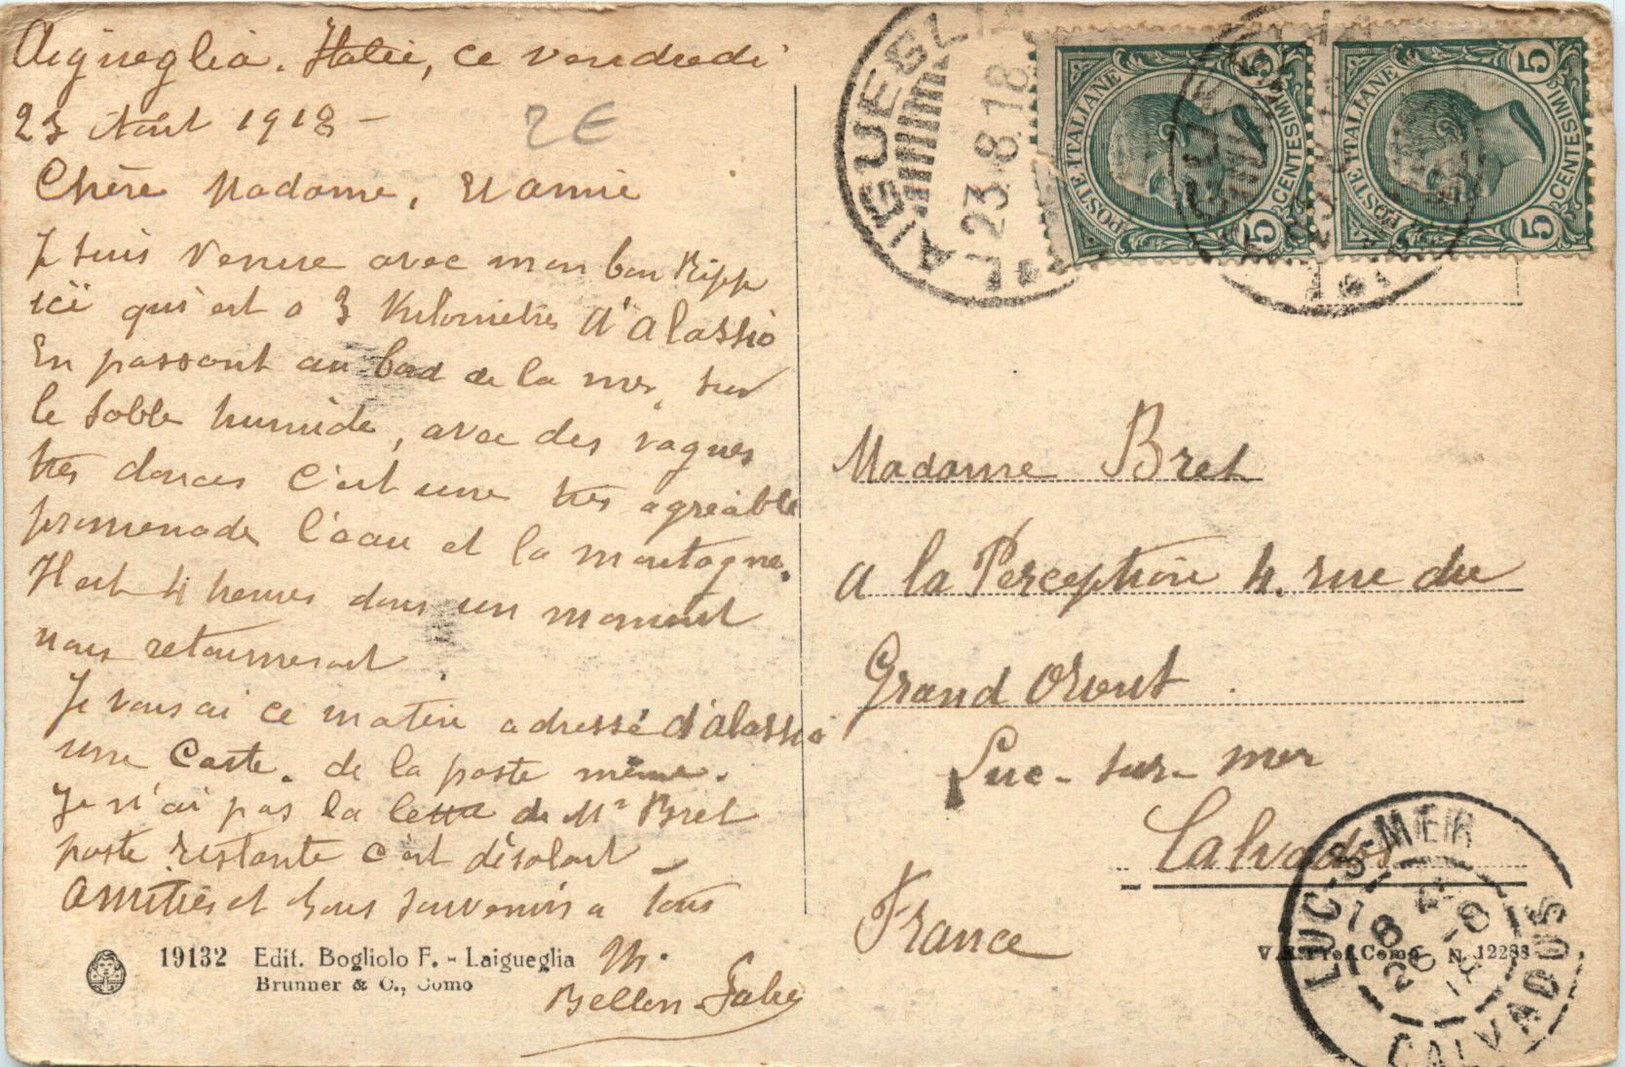 Aigueglia. Italie, ce vendredi
23 Août 1918 -
2€
Chère Madame, Et amie
Je suis venue avec mon bon Ripp
ici qui est a 3 Kilomètres d'alassio
En passant au bord de la mer, sur
le sable humide, avec des vagues
très douces c'est une très agréable
promenade l'eau et la montagne.
Il est 4 heures dans un moment
nous retourneront
Je vous ai ce matin adressé d'alassio
une Carte. de la poste même.
Je n'ai pas la lettre de Mr Bret
poste restante c'est désolant
amitiés et bons souvenirs a tous
M.
Bellon
19132 Edit. Bogliolo F. - Laigueglia
Brunner & C., Como
LAIGUEGLIA
23.8.18
POSTE ITALIANE
CENTESIMI 5
POSTE ITALIANE
CENTESIMI 5
Madame Bret
a la Perception 4. rue du
Grand Orient
Luc-sur-mer
Calvados
France
N. 12288
LUC-S-MER
CALVADOS